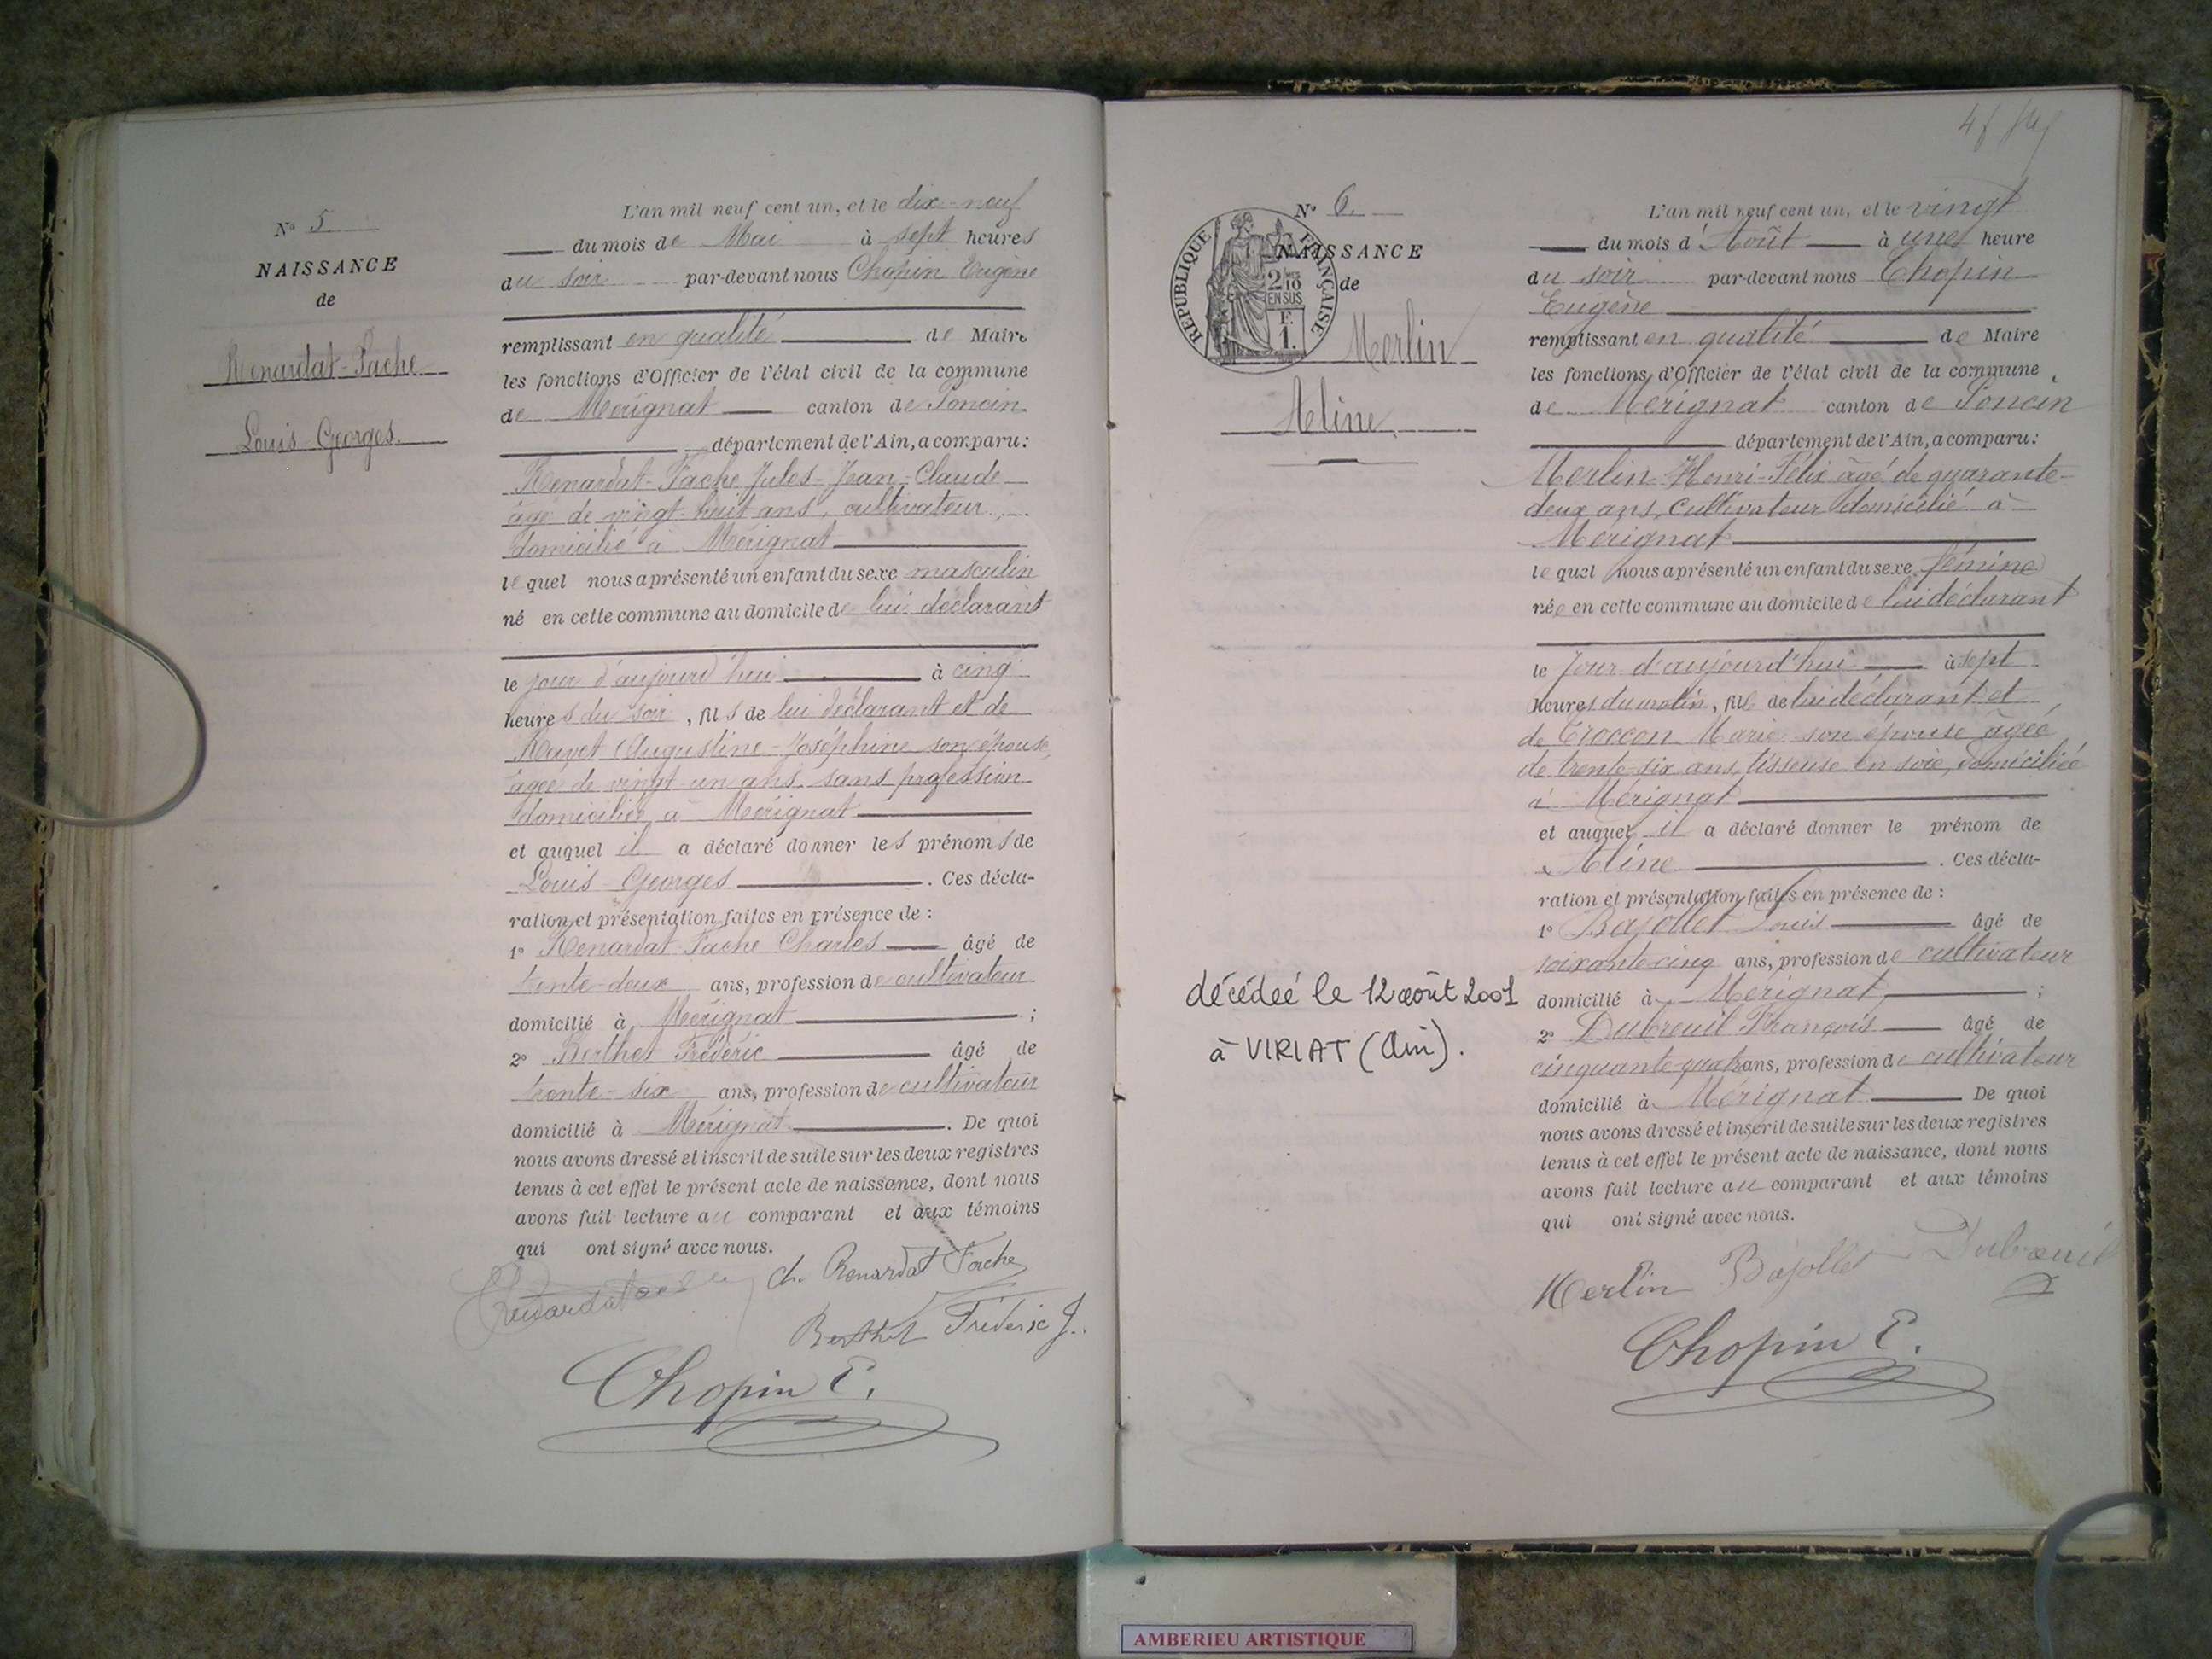 N° 5.
NAISSANCE
de
Renardat-Fache
Louis Georges.
L'an mil neuf cent un, et le dix-neuf
du mois de Mai à sept heures
du soir par-devant nous Chopin Eugène
remplissant en qualité de Maire
les fonctions d'Officier de l'état civil de la commune
de Mérignat canton de Poncin
département de l'Ain, a comparu:
Renardat-Fache Jules-Jean-Claude
âgé de vingt-huit ans, cultivateur,
domicilié à Mérignat
lequel nous a présenté un enfant du sexe masculin
né en cette commune au domicile de lui déclarant
le jour d'aujourd'hui à cinq
heures du soir, fils de lui déclarant et de
Augustine-Joséphine son épouse,
âgée de vingt-un ans, sans profession
domiciliée à Mérignat
et auquel il a déclaré donner les prénoms de
Louis Georges. Ces décla-
ration et présentation faites en présence de :
1° Renardat-Fache Charles âgé de
trente-deux ans, profession de cultivateur
domicilié à Mérignat ;
2° Berthet Frédéric âgé de
trente-six ans, profession de cultivateur
domicilié à Mérignat. De quoi
nous avons dressé et inscrit de suite sur les deux registres
tenus à cet effet le présent acte de naissance, dont nous
avons fait lecture au comparant et aux témoins
qui ont signé avec nous.
Ch. Renardat Fache
Berthet Fréderic J.
Chopin E.
N° 6.
RÉPUBLIQUE FRANÇAISE
2/10 EN SUS
F. 1.
NAISSANCE
de
Merlin
Aline.
décédée le 12 août 2001
à VIRIAT (Ain).
L'an mil neuf cent un, et le vingt
du mois d'Août à une heure
du soir par-devant nous Chopin
Eugène
remplissant en qualité de Maire
les fonctions d'Officier de l'état civil de la commune
de Mérignat canton de Poncin
département de l'Ain, a comparu:
Merlin Henri-Félix âgé de quarante-
deux ans, cultivateur domicilié à
Mérignat
lequel nous a présenté un enfant du sexe fémine
née en cette commune au domicile de lui déclarant
le jour d'aujourd'hui à sept
heures du matin, fille de lui déclarant et
de Croccon Marie son épouse âgée
de trente-six ans, tisseuse en soie, domiciliée
à Mérignat
et auquel il a déclaré donner le prénom de
Aline. Ces décla-
ration et présentation faites en présence de :
1° Bajollet Louis âgé de
soixante-cinq ans, profession de cultivateur
domicilié à Mérignat ;
2° Dubreuil François âgé de
cinquante-quatre ans, profession de cultivateur
domicilié à Mérignat De quoi
nous avons dressé et inscrit de suite sur les deux registres
tenus à cet effet le présent acte de naissance, dont nous
avons fait lecture au comparant et aux témoins
qui ont signé avec nous.
Merlin Bajollet Dubreuil
Chopin E.
AMBERIEU ARTISTIQUE